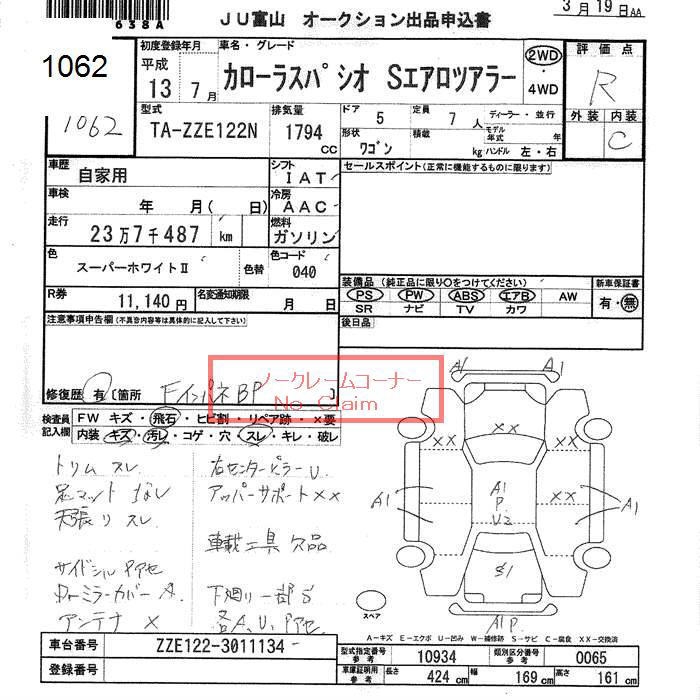 638A
JU富山 オークション出品申込書
3月19日AA
1062
1062
初度登録年月
平成
13年7月
車名・グレード
カローラスパシオ Sエアロツアラー
2WD
・
4WD
評価点
R
外装 内装
C
型式
TA-ZZE122N
排気量
1794
cc
ドア
5
定員
7人
形状
ワゴン
積載
kg
ディーラー・並行
モデル年式
年
ハンドル 左・右
車歴
自家用
シフト
IAT
車検
年 月( 日)
冷房
AAC
走行
23万7千487 km
燃料
ガソリン
色
スーパーホワイトⅡ
色替
色コード
040
R券
11,140円
名変通知期限
月 日
セールスポイント(正常に機能するものに限ります)
装備品(純正品に限り○をつけてください)
PS PW ABS エアB AW
SR ナビ TV カワ
新車保証書
有・無
後日品
注意事項申告欄(不具合内容等は具体的に記入して下さい)
修復歴 有[箇所 FインパネBP ]
ノークレームコーナー
No Claim
検査員記入欄
FW キズ・飛石・ヒビ割・リペア跡・×要
内装・キズ・汚レ・コゲ・穴・スレ・キレ・破レ
トリム スレ
足マット なし
天張り スレ
サイドシル Pアセ
ルームミラーカバー ×
アンテナ ×
右センターピラー U
アッパーサポート ××
車載工具 欠品
下廻り一部S
各A、U、Pアセ
A1
A1
××
××
××
A1
A1
A1
P
U2
S1
A1P
スペア
A-キズ E-エクボ U-凹み W-補修跡 S-サビ C-腐食 XX-交換済
車台番号
ZZE122-3011134
登録番号
型式指定番号
参考
10934
類別区分番号
参考
0065
車庫証明用
参考
長さ
424 cm
幅
169 cm
高さ
161 cm